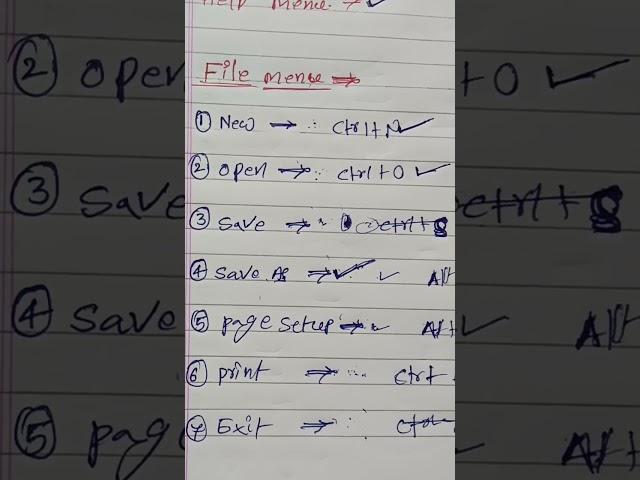 Help menu → ✓
File menu ⇒
① New → ∴ Ctrl+N ✓
② open → ∴ ctrl+O ✓
③ Save → ctrl+S
④ Save As → ✓ ✓ Alt
⑤ page Setup → Alt
⑥ print ⇒ ctrl
⑦ Exit ⇒ ∴